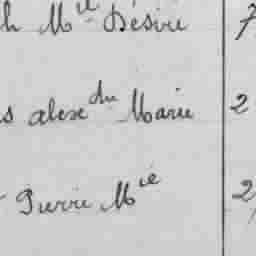 h Mie Désiré 7
s alexdre Marie 2
Pierre Mie 2